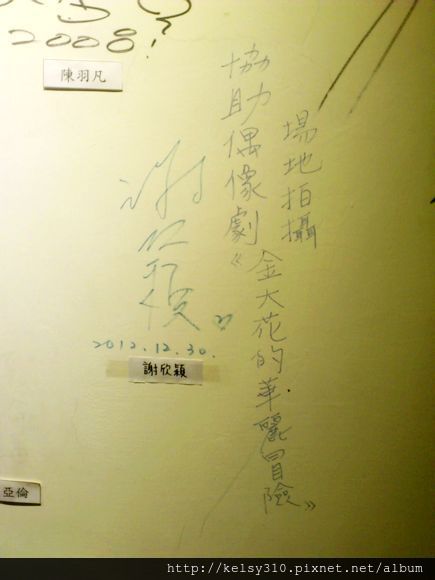 2008?
陳羽凡
協助偶像劇
場地拍攝
《金大花的華麗冒險》
謝欣穎
2012.12.30.
謝欣穎
亞倫
http://kelsy310.pixnet.net/album